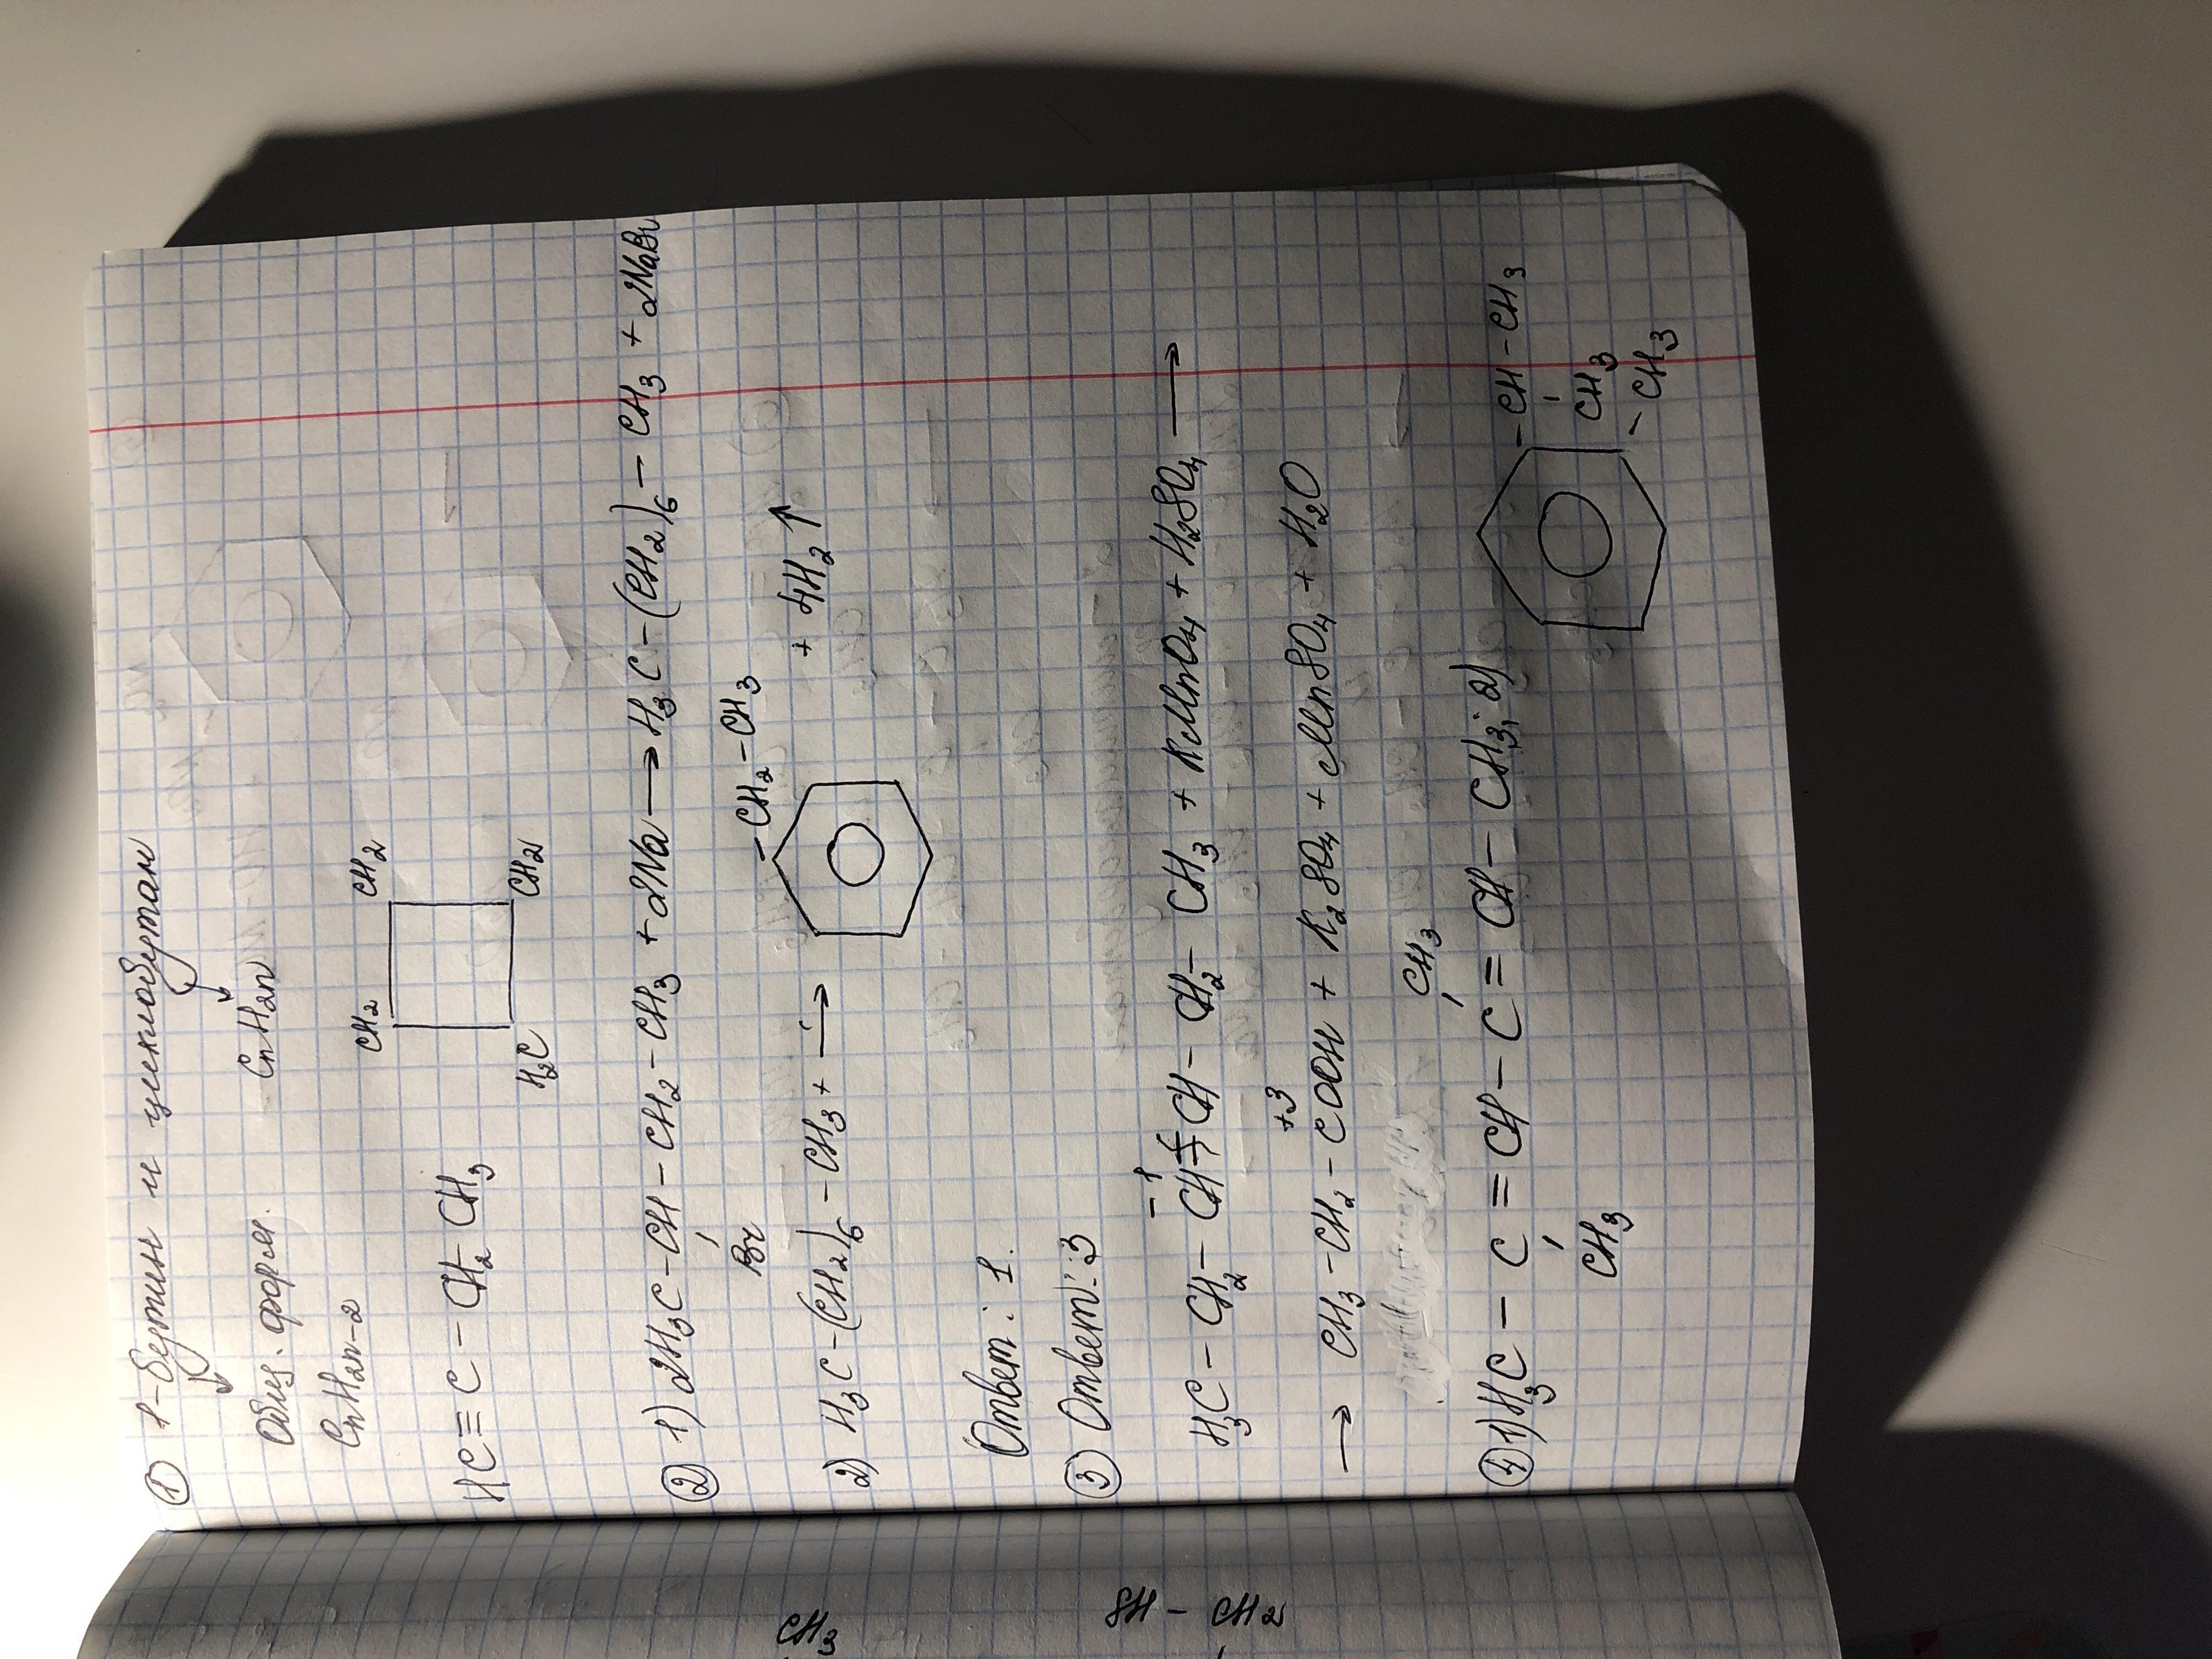 ① 1-бутин и циклобутан
Общ. форм. CnH2n
CnH2n-2
CH2 CH2
HC≡C-CH2-CH3
H2C CH2
② 1) 2H3C-CH-CH2-CH3 + 2Na → H3C-(CH2)6-CH3 + 2NaBr
Br
-CH2-CH3
2) H3C-(CH2)6-CH3 + → + 4H2↑
Ответ: 1.
③ Ответ: 3
-1
H3C-CH2-CH=CH-CH2-CH3 + KMnO4 + H2SO4 →
+3
→ CH3-CH2-COOH + K2SO4 + MnSO4 + H2O
CH3
④ 1) H3C-C=CH-C=CH-CH3; 2) -CH-CH3
CH3 CH3
-CH3
CH3
SH- CH2